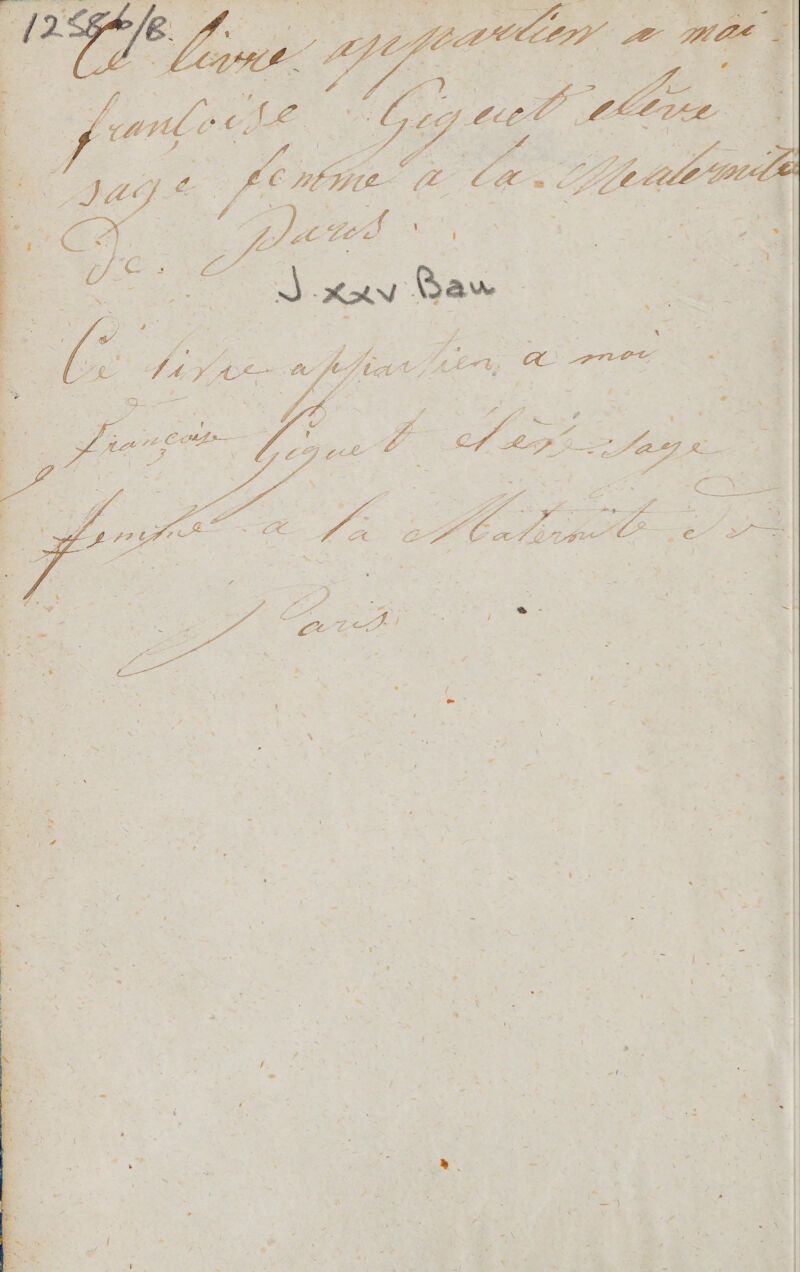 12586/B.
Ce livre appartien a moi
françoise Giguet eleve
sage femme a la Maternite
De Paris
J. xxv Bau
Ce livre appartien a moi
Françoise Giguet élève sage
femme a la Maternite de
Paris